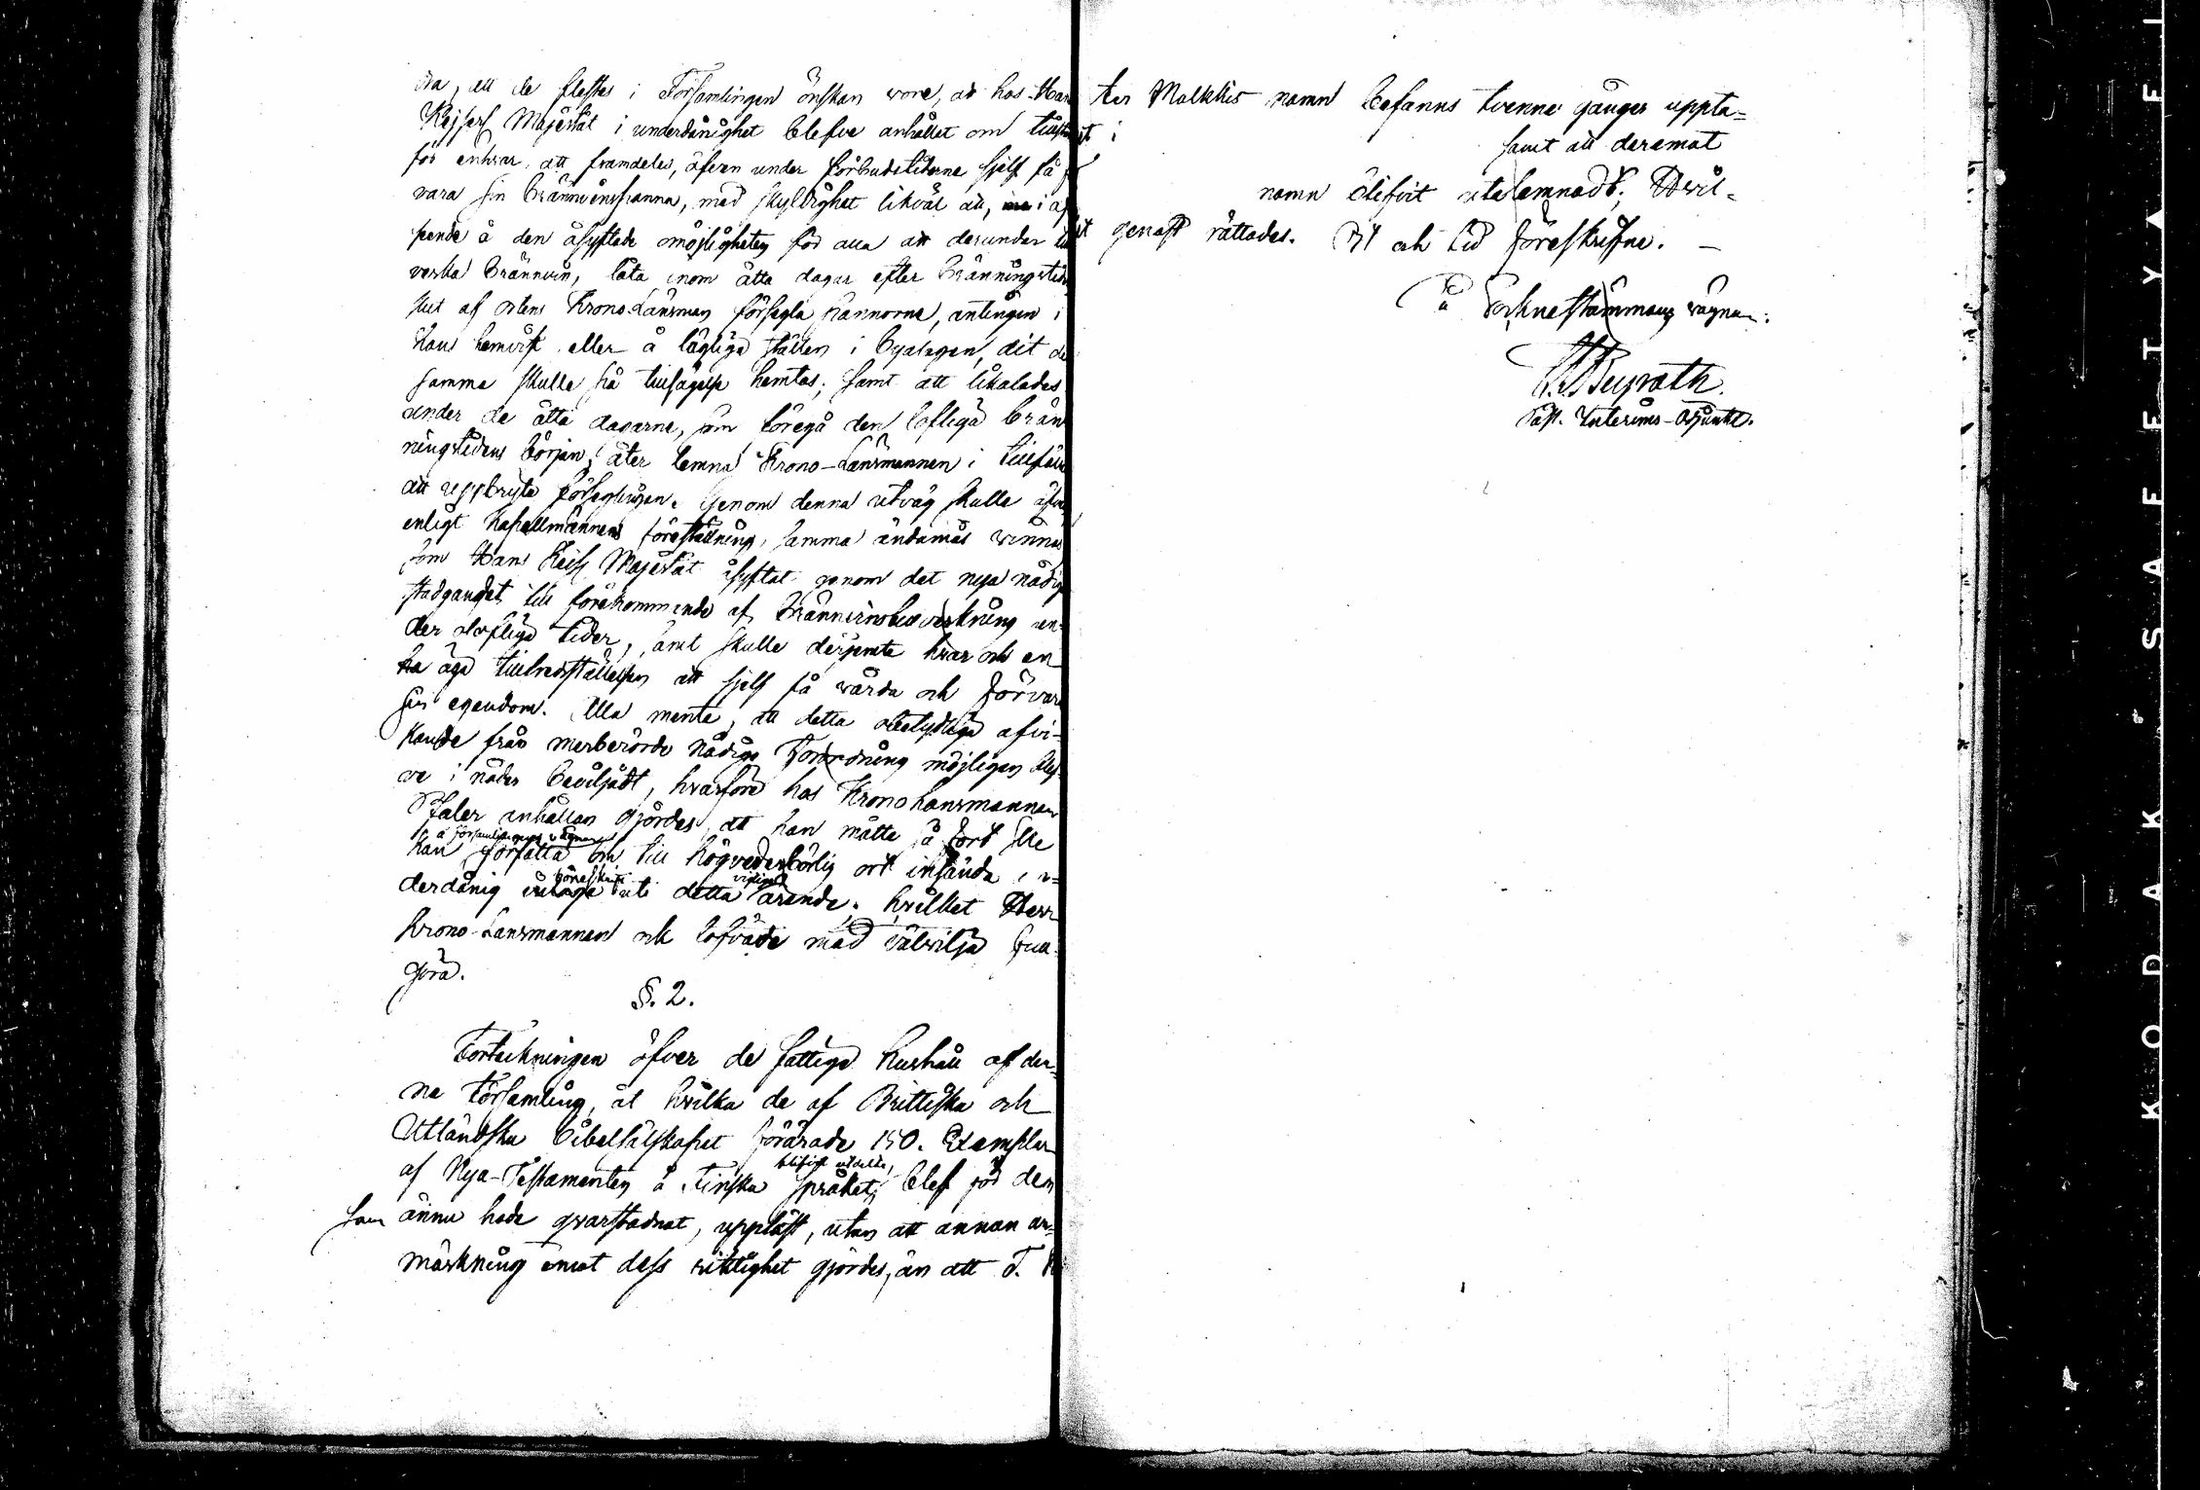 da, att de flestes i Församlingen önskan vore, att hos Hans
Kejserl Majestät i underdånighet blefve anhållet om tillstånd
för enhvar, att framdeles, äfven under förbudstiderna sjelf få
vara sin Brännvinspanna, med skyldighet likväl att, i af
seende å den åsyftade omöjligheten för alla att derunder
verka Brännvin, låta inom åtta dagar efter Bränningstidens
slut af ortens Krono-Länsman försegla pannorna, antingen i
hans hemvist eller å lägliga ställen i byalagen, dit de
samma skulle på tillsägelse hemtas; samt att likaledes
under de åtta dagarne, som föregå den lofliga brän
ningstidens början, åter lemna Krono-Länsmannen i tillfälle
att uppbryta förseglingen. Genom denna utväg skulle äfven
enligt Kapellmännens föreställning, samma ändamål vinnas
som Hans Keis. Majestät åsyftat genom det nya nådiga
stadgandet till förekommande af Brännvinstillverkning un-
der olofliga tider, samt skulle derjemte hvar och en
äga tillfredsställelsen att sjelf få vårda och förvara
sin egendom. Alla mente, att detta obetydliga afvi-
kande från merberörde Nådiga Förordning möjligen blef-
ve i nåder beviljadt, hvarföre hos Krono Länsmannen
anhållan gjordes, att han måtte så fort ske
å församlingens vägnar
kan författa och till högvederbörlig ort insända un-
böneskrift viktiga
derdånig uti detta ärende; hvilket Herr
Krono-Länsmannen ock lofvade med välvilja full-
göra.
§. 2.
Förteckningen öfver de fattiga hushåll af den-
na Församling, åt hvilka de af Brittiska och
Utländska Bibelsälskapet förärade 150. Exemplar
blifvit utdelte,
af Nya-Testamenten å Finska språket, blef för dem
som ännu hade qvarstadnat, uppläst, utan att annan an-
märkning emot dess riktighet gjordes, än att T.
ter Malkkis namn befanns tvenne gånger uppta-
samt att deremot
namn blifvit utelemnadt; Hvil-
genast rättades. År och tid föreskrifne. —
På Socknestämmans vägnar:
Beyrath.
Past. Interims-Adjunkt.